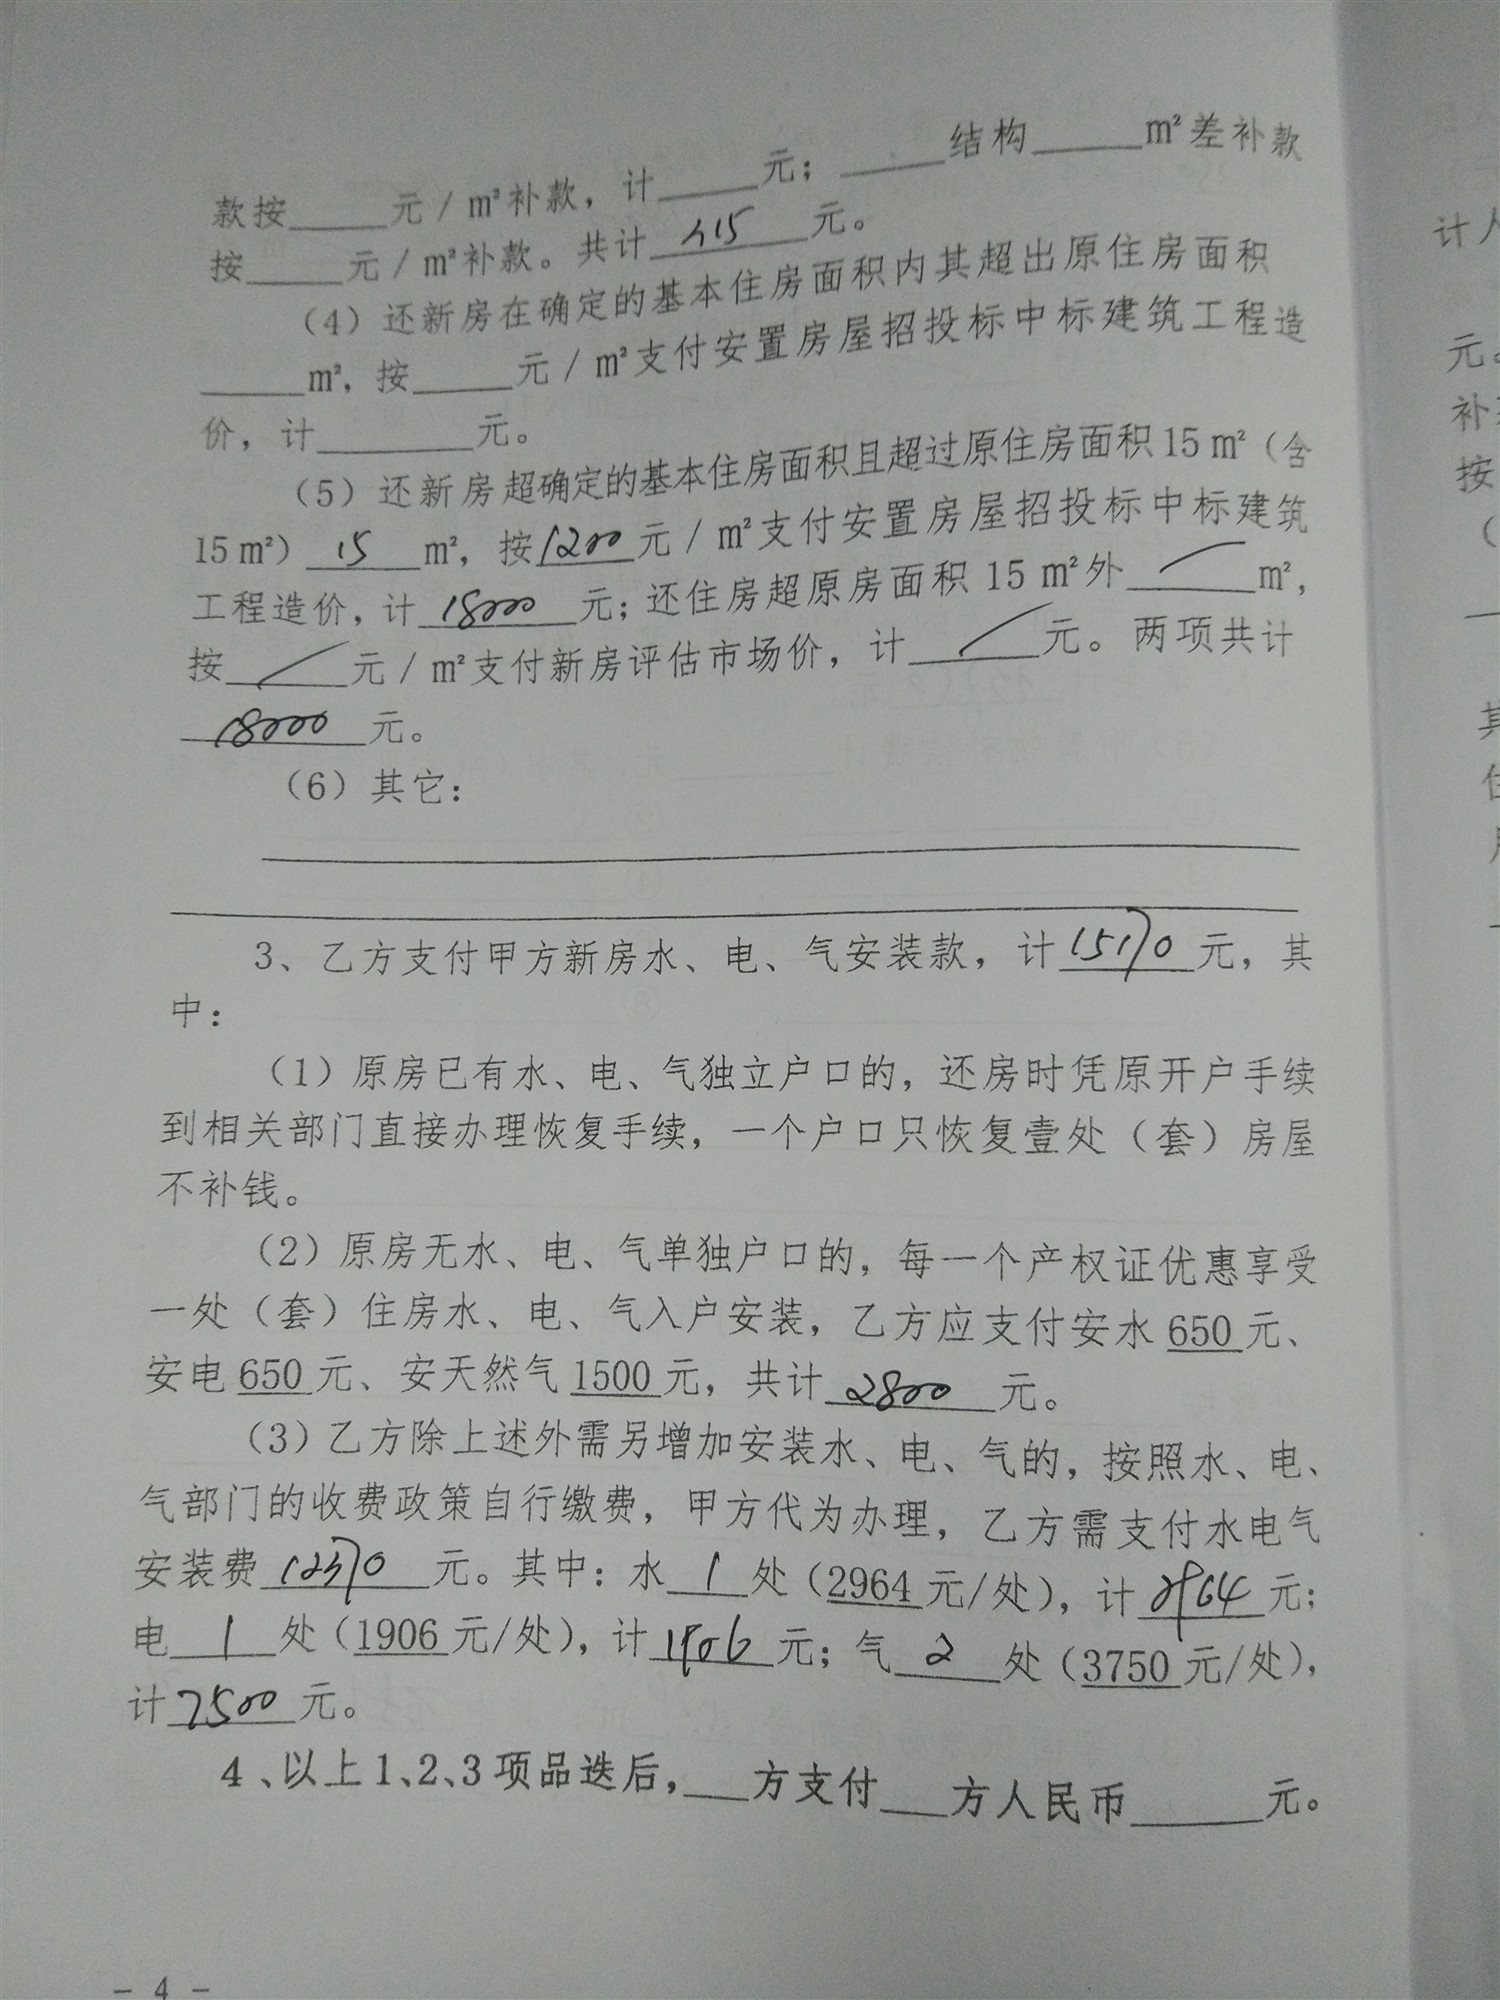 款按______元／m²补款，计______元；______结构______m²差补款
按______元／m²补款。共计______元。
（4）还新房在确定的基本住房面积内其超出原住房面积
______m²，按______元／m²支付安置房屋招投标中标建筑工程造
价，计______元。
（5）还新房超确定的基本住房面积且超过原住房面积15m²（含
15m²）15m²，按1200元／m²支付安置房屋招投标中标建筑
工程造价，计18000元；还住房超原房面积15m²外／m²，
按／元／m²支付新房评估市场价，计／元。两项共计
18000元。
（6）其它：
3、乙方支付甲方新房水、电、气安装款，计15170元，其
中：
（1）原房已有水、电、气独立户口的，还房时凭原开户手续
到相关部门直接办理恢复手续，一个户口只恢复壹处（套）房屋
不补钱。
（2）原房无水、电、气单独户口的，每一个产权证优惠享受
一处（套）住房水、电、气入户安装，乙方应支付安水650元、
安电650元、安天然气1500元，共计2800元。
（3）乙方除上述外需另增加安装水、电、气的，按照水、电、
气部门的收费政策自行缴费，甲方代为办理，乙方需支付水电气
安装费12370元。其中：水1处（2964元/处），计2964元；
电1处（1906元/处），计1906元；气2处（3750元/处），
计7500元。
4、以上1、2、3项品迭后，___方支付___方人民币______元。
- 4 -
计
元。
补
按
（
其
住